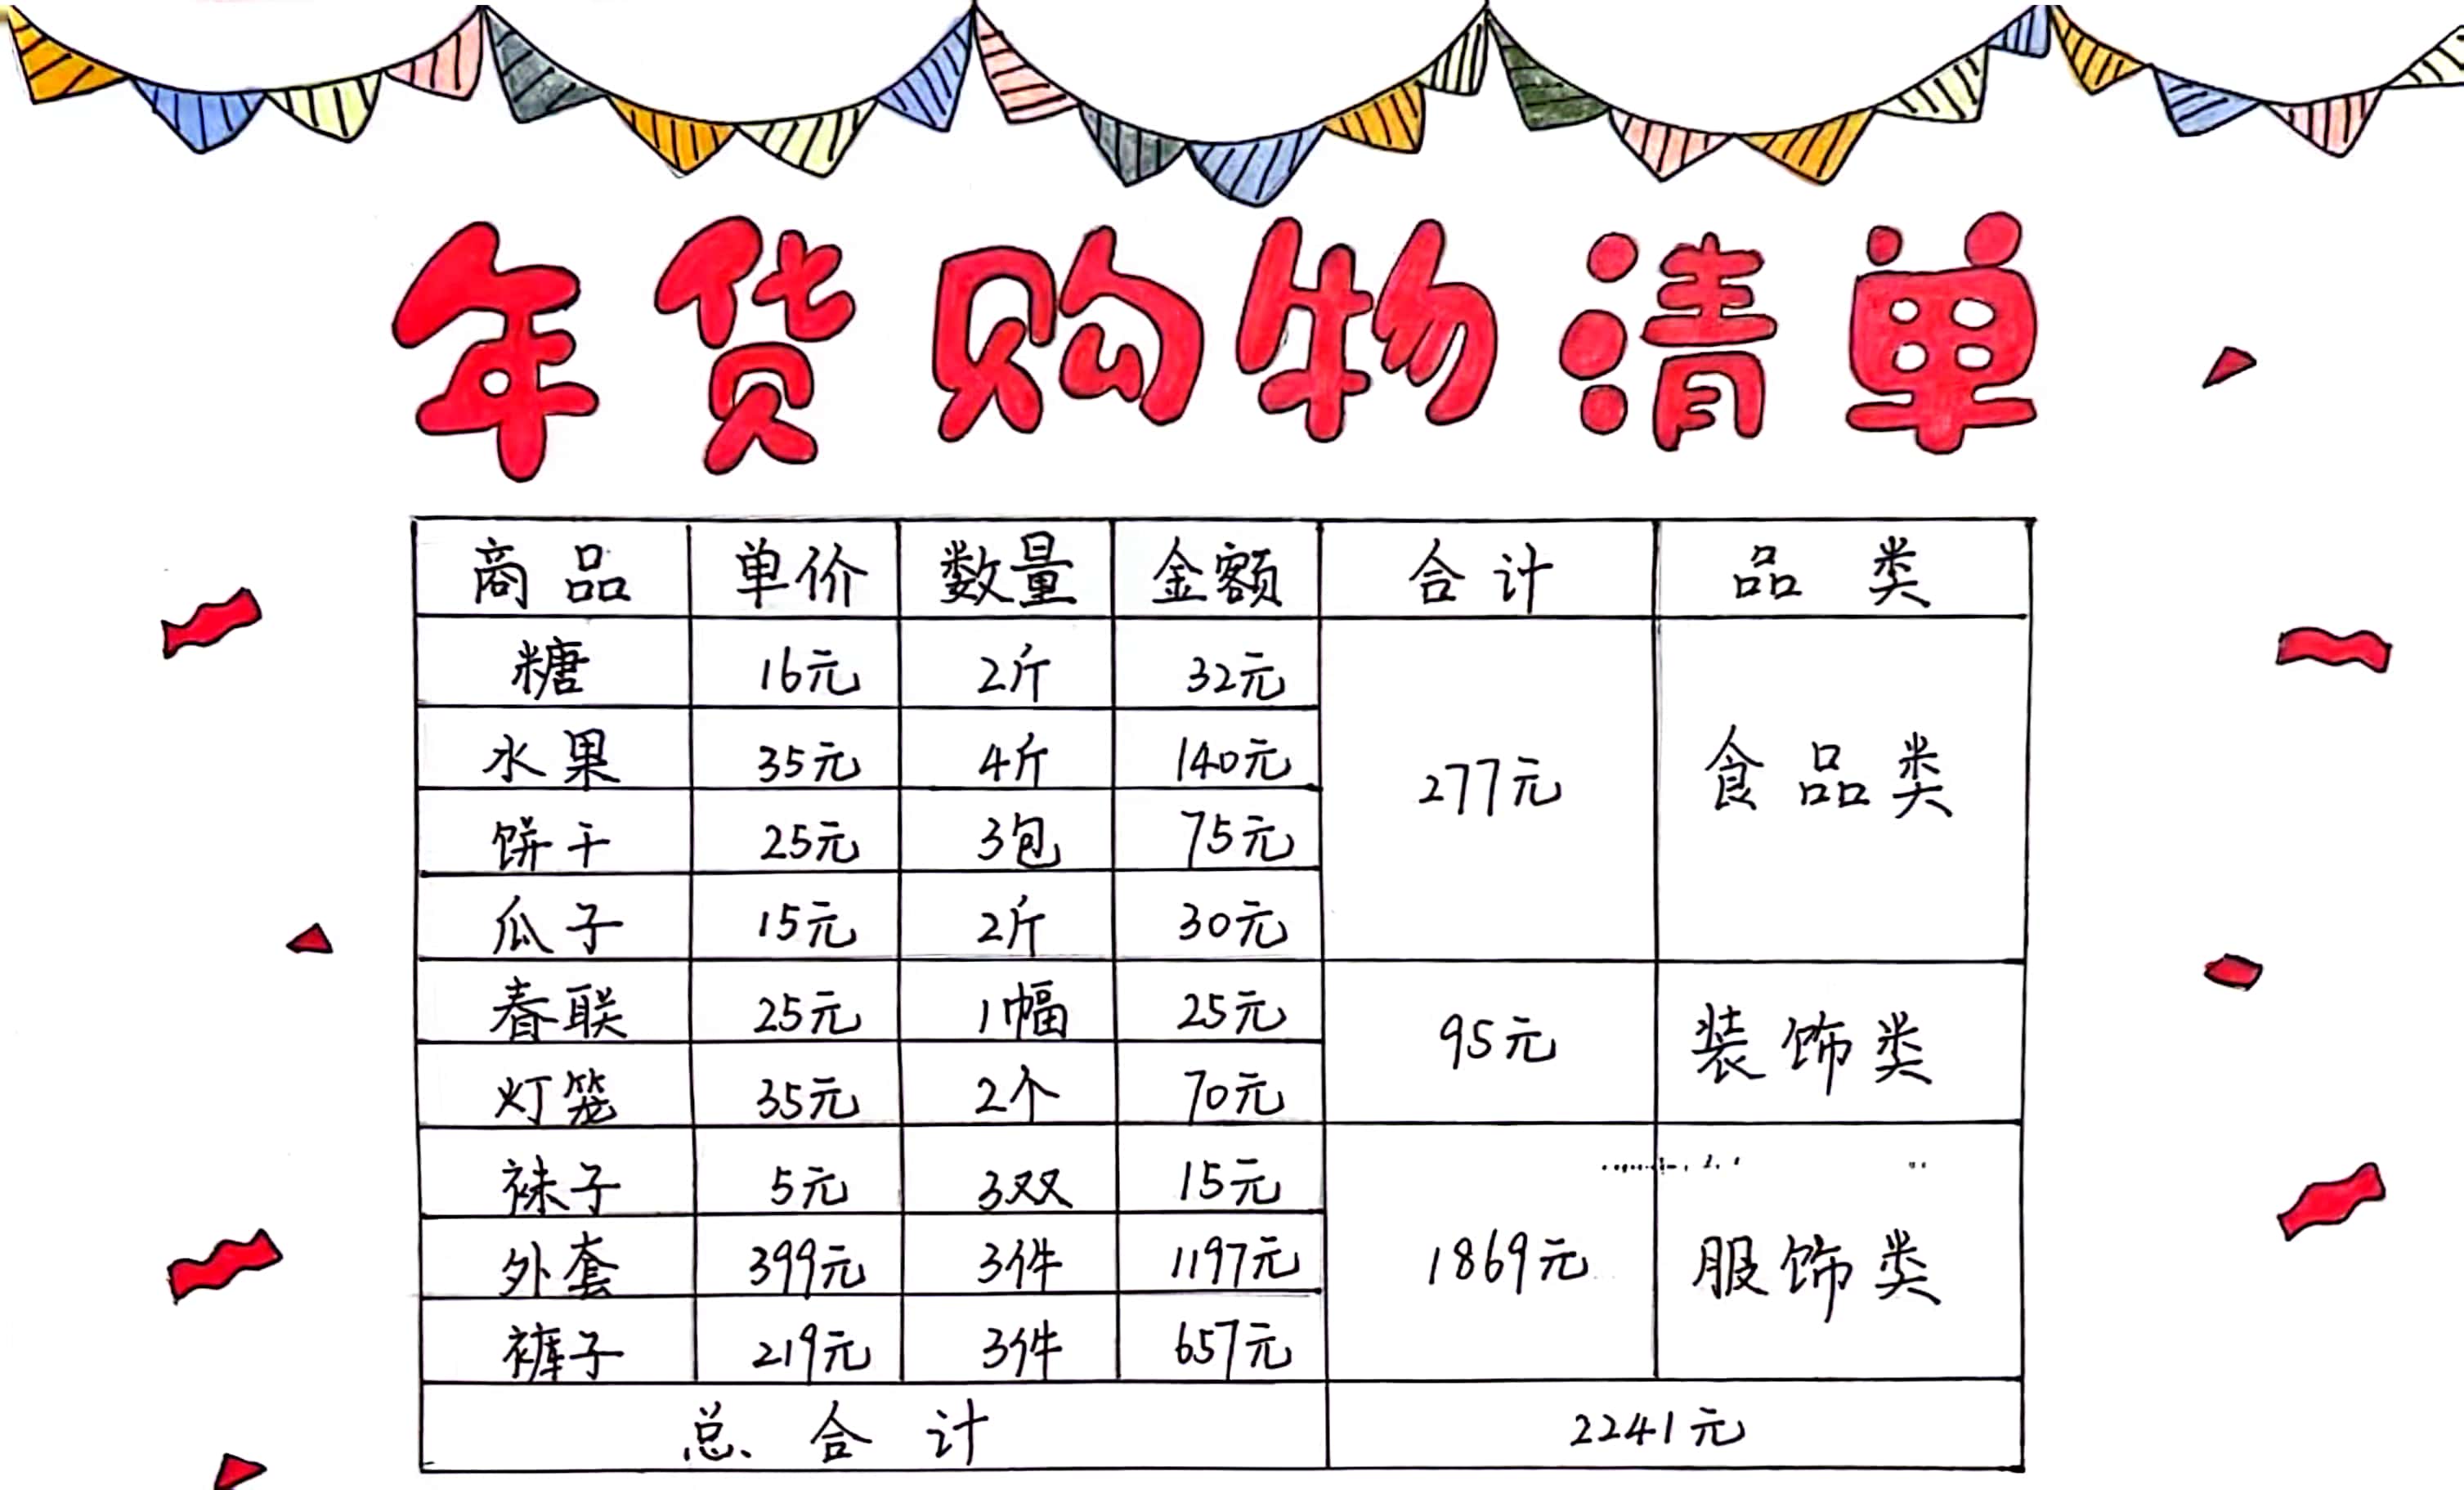 年货购物清单
商品 单价 数量 金额 合计 品类
糖 16元 2斤 32元
水果 35元 4斤 140元 277元 食品类
饼干 25元 3包 75元
瓜子 15元 2斤 30元
春联 25元 1幅 25元 95元 装饰类
灯笼 35元 2个 70元
袜子 5元 3双 15元
外套 399元 3件 1197元 1869元 服饰类
裤子 219元 3件 657元
总合计 2241元